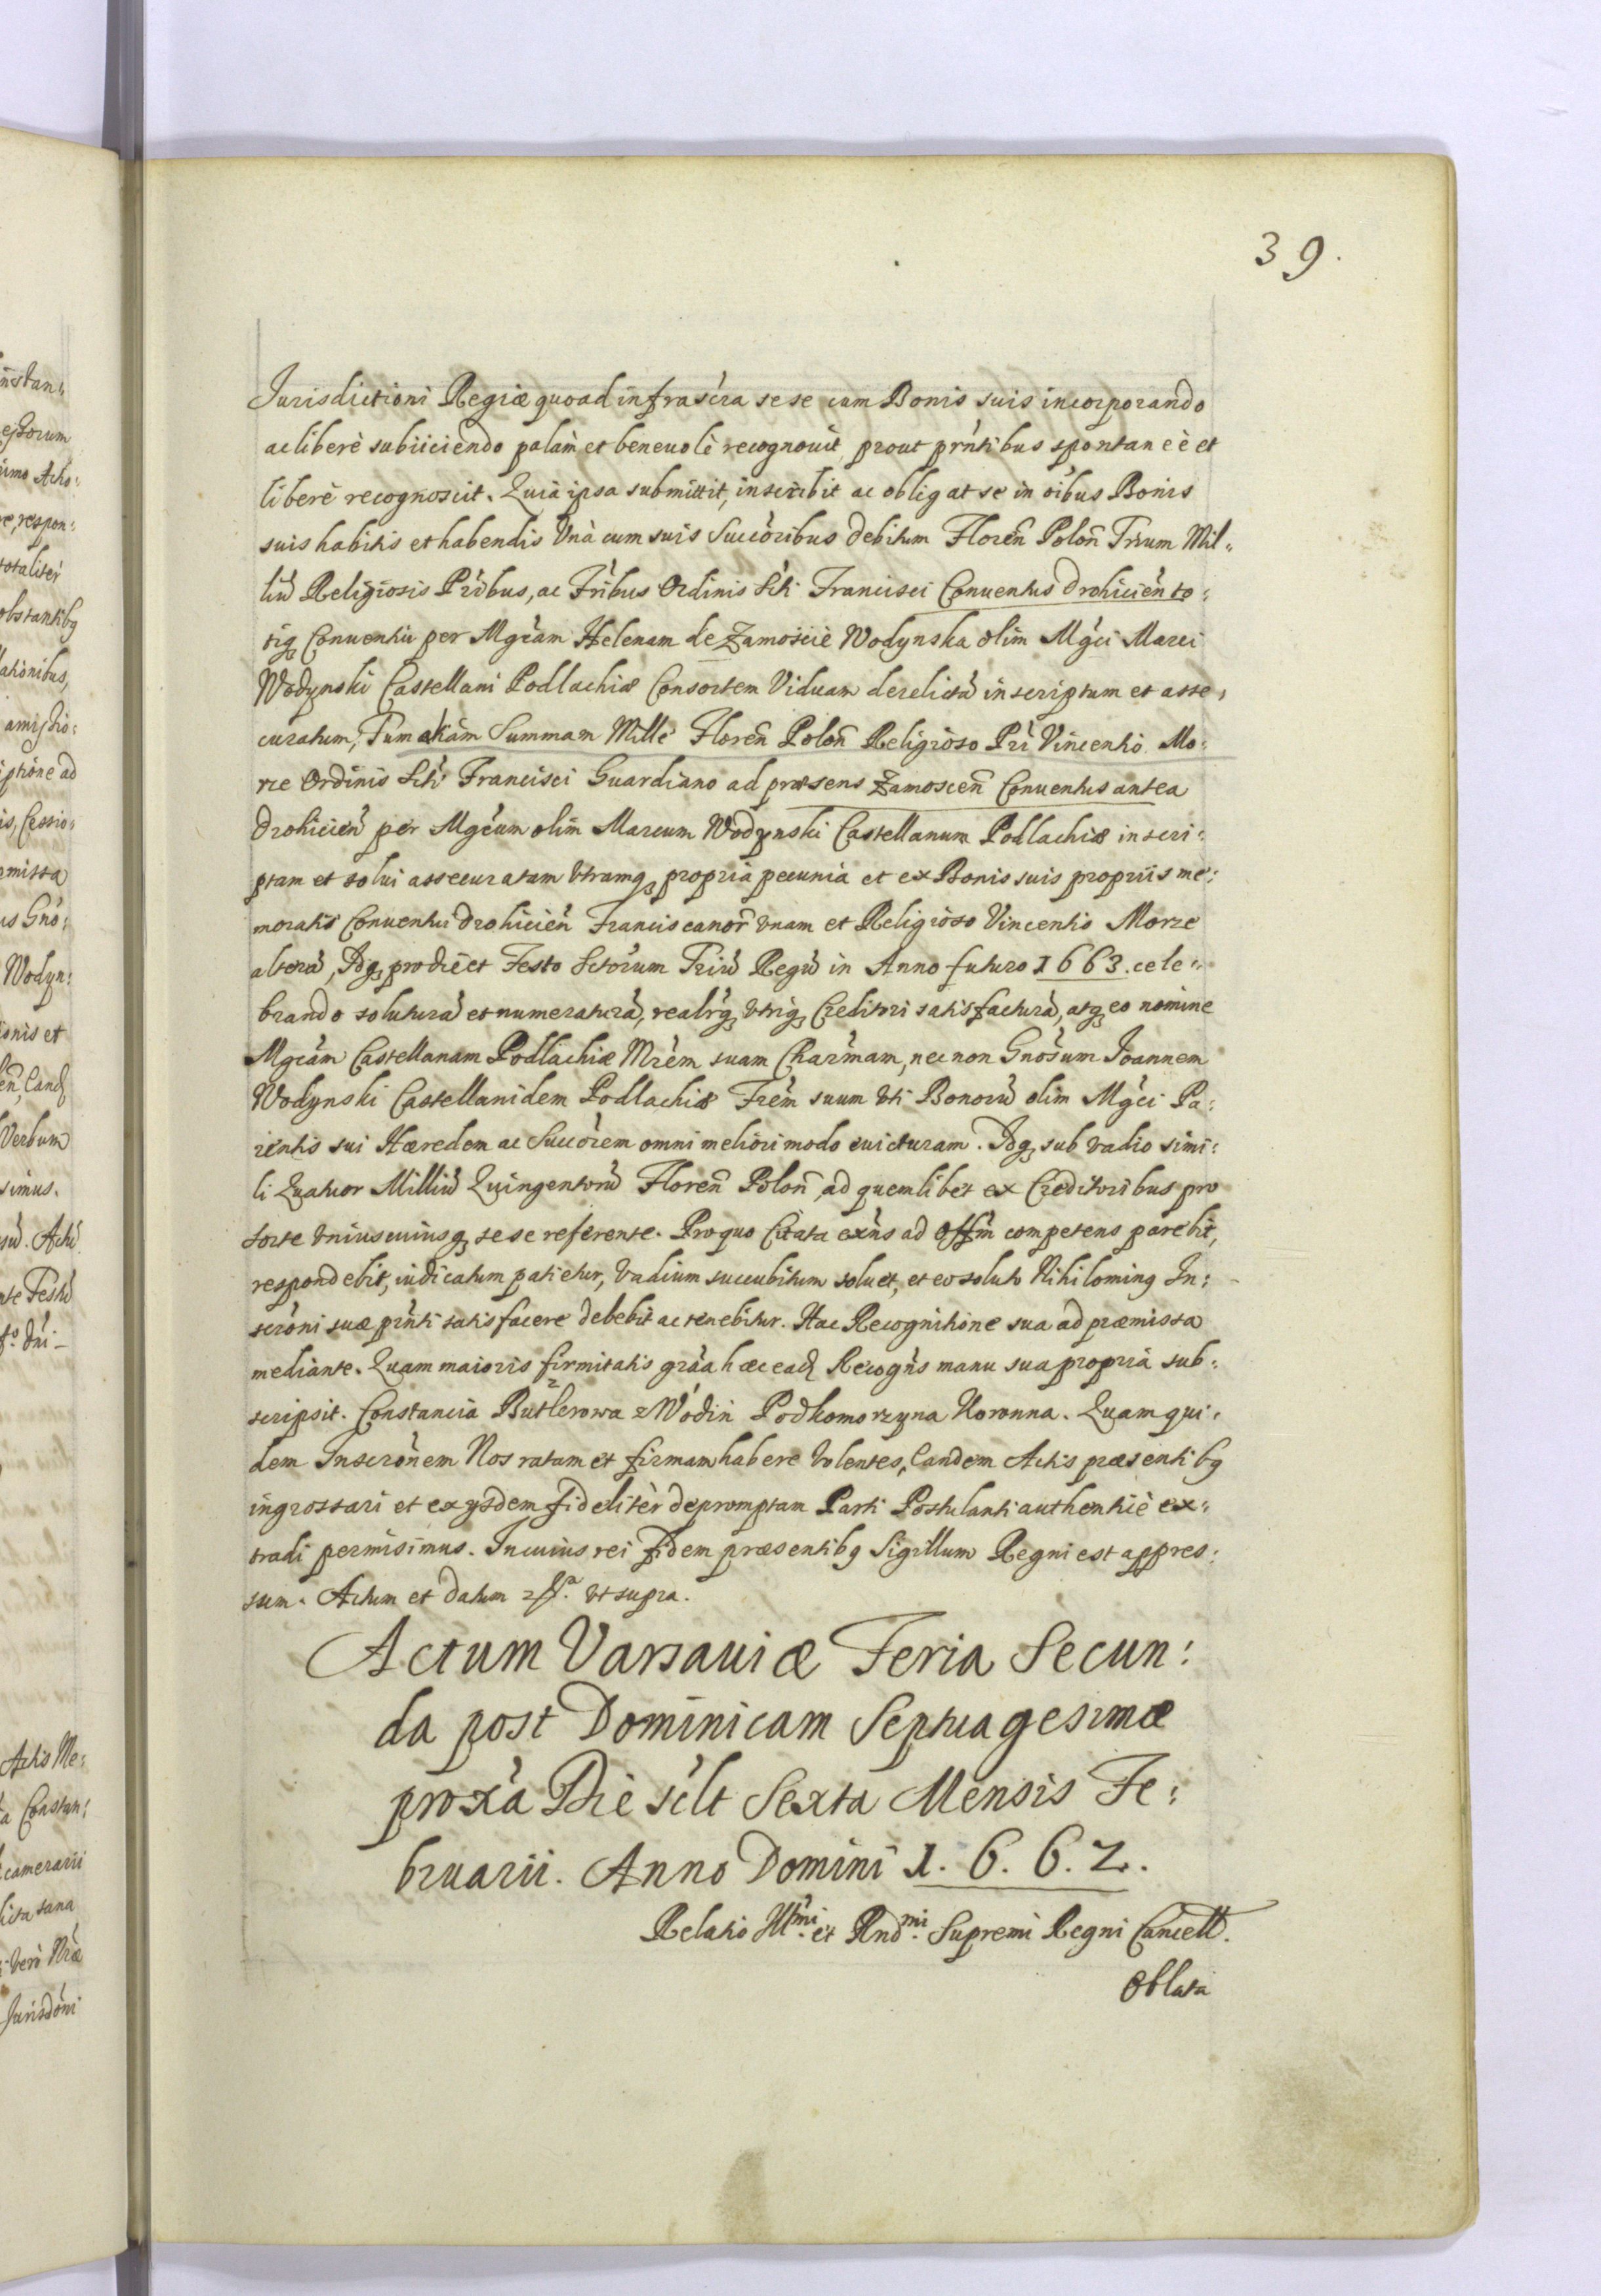 39.
Jurisdictioni Regiæ quoad infrascra sese cum Bonis suis incorporando
ac liberè subiiciendo palàm et beneuolè recognouit, prout prntibus spontaneè et
liberè recognoscit. Quia ipsa submittit, inscribit ac obligat se in oibus Bonis
suis habitis et habendis Vnà cum suis Succoribus debitum Floren Polon Trium Mil:
liu Religiosis Pribus, ac Fribus Ordinis Scti Francisci Conuentus Drohicien to:
tiq Conuentui per Mgcam Helenam de Zamoscie Wodynska olim Mgci Marci
Wodynski Castellani Podlachiæ Consortem Viduam derelicta inscriptum et asse:
curatum, Tum aliam Summam Mille Floren Polon Religioso Pri Vincentio Mo:
rze Ordinis Scti Francisci Guardiano ad præsens Zamoscen Conuentus antea
Drohicien per Mgcum olim Marcum Wodynski Castellanum Podlachiæ inscri:
ptam et solui assecuratam vtramq propria pecunia et ex Bonis suis propriis me:
moratis Conuentui Drohicien Franciscanor vnam et Religioso Vincentio Morze
altera, Idq pro die et Festo Sctorum Triu Regu in Anno futuro 1663. cele:
brando solutura et numeratura, realrq vtriq Creditori satisfactura, atq eo nomine
Mgcam Castellanam Podlachiæ Mrem suam Charmam, nec non Gnosum Joannem
Wodynski Castellanidem Podlachiæ Frem suum vti Bonoru olim Mgci Pa:
rentis sui Hæredem ac Succorem omni meliori modo euicturam. Idq sub vadio simi:
li Quatuor Milliu Quingentoru Floren Polon, ad quemlibet ex Creditoribus pro
sorte vniuscuiusq sese referente. Pro quo Citata exns ad Offm competens parebit,
respondebit, iudicatum patietur, Vadium succubitum soluet, et eo soluto Nihilominq In:
scroni suæ prnti satisfacere debebit ac tenebitur. Hac Recognitione sua ad præmissa
mediante. Quam maioris firmitatis graa hæc ead Recogns manu sua propria sub:
scripsit. Constancia Butlerowa z Wodin Podkomorzyna Koronna. Quam qui:
dem Inscronem Nos ratam et firmam habere Volentes, Eandem Actis præsentibq
ingrossari et ex ysdem fidelitèr depromptam Parti Postulanti authenticè ex:
tradi permisimus. In cuius rei fidem præsentibq Sigillum Regni est appres:
sum. Actum et datum vt supra.
Actum Varsauiæ Feria Secun:
da post Dominicam Septuagesimæ
proxa Die sclt Sexta Mensis Fe:
bruarii. Anno Domini 1. 6. 6. 2.
Relatio Illmi. et Rndmi. Supremi Regni Cancell.
Oblata